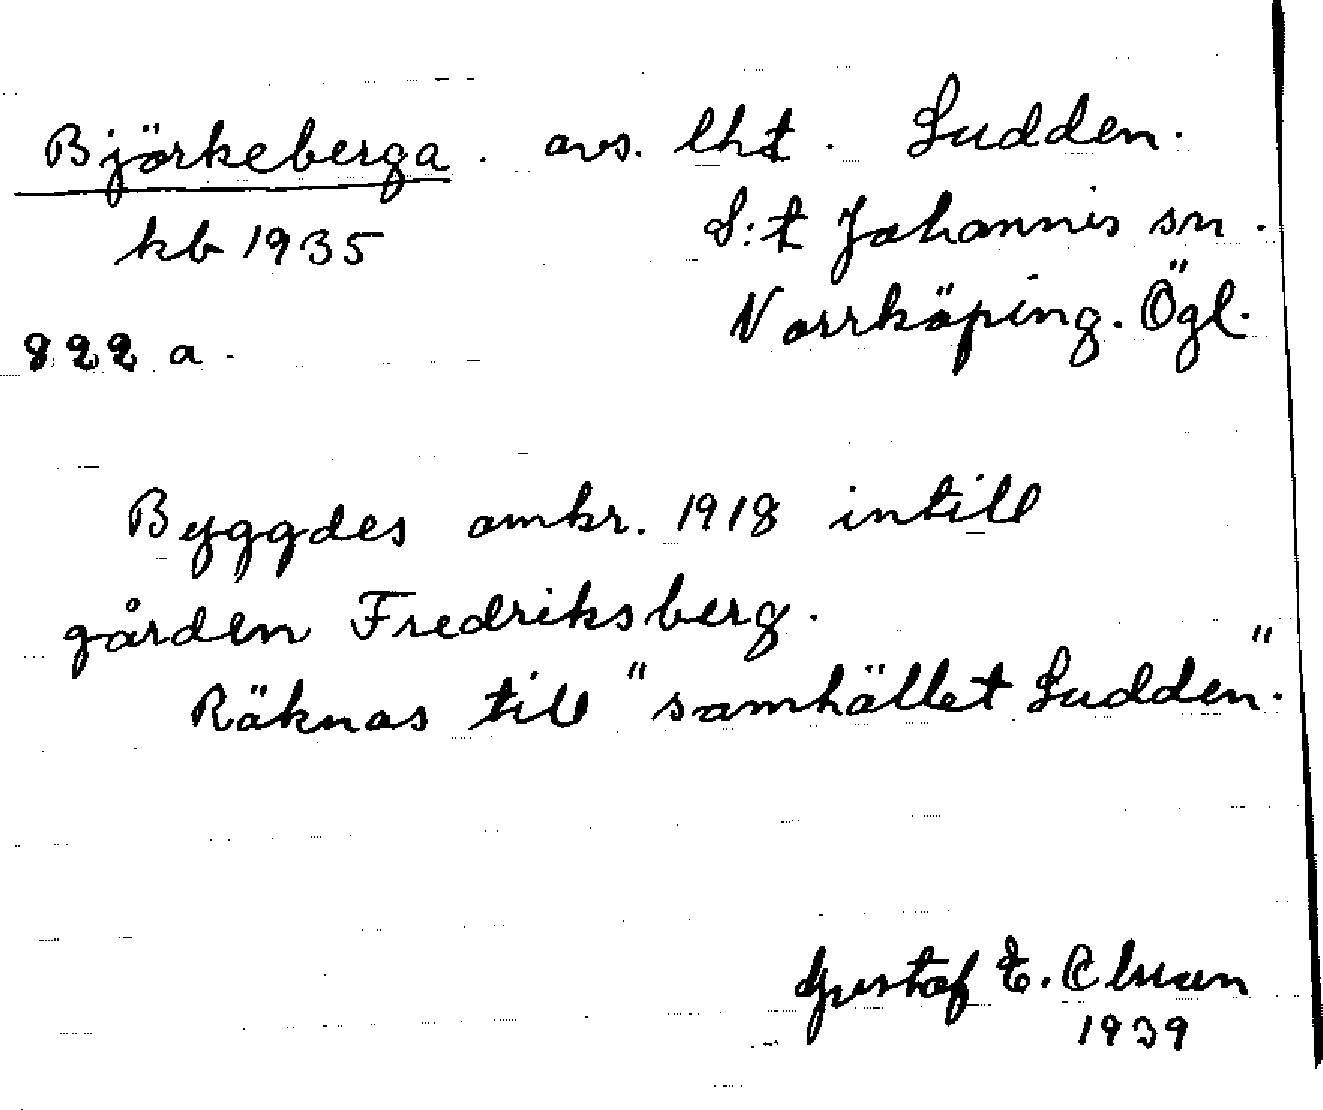 Björkeberga. avs. lht. Sudden.
kb 1935 S:t Johannis sn.
Norrköping. Ögl.
822 a.
Byggdes omkr. 1918 intill
gården Fredriksberg.
Räknas till "samhället Sudden."
Gustaf E.
1939